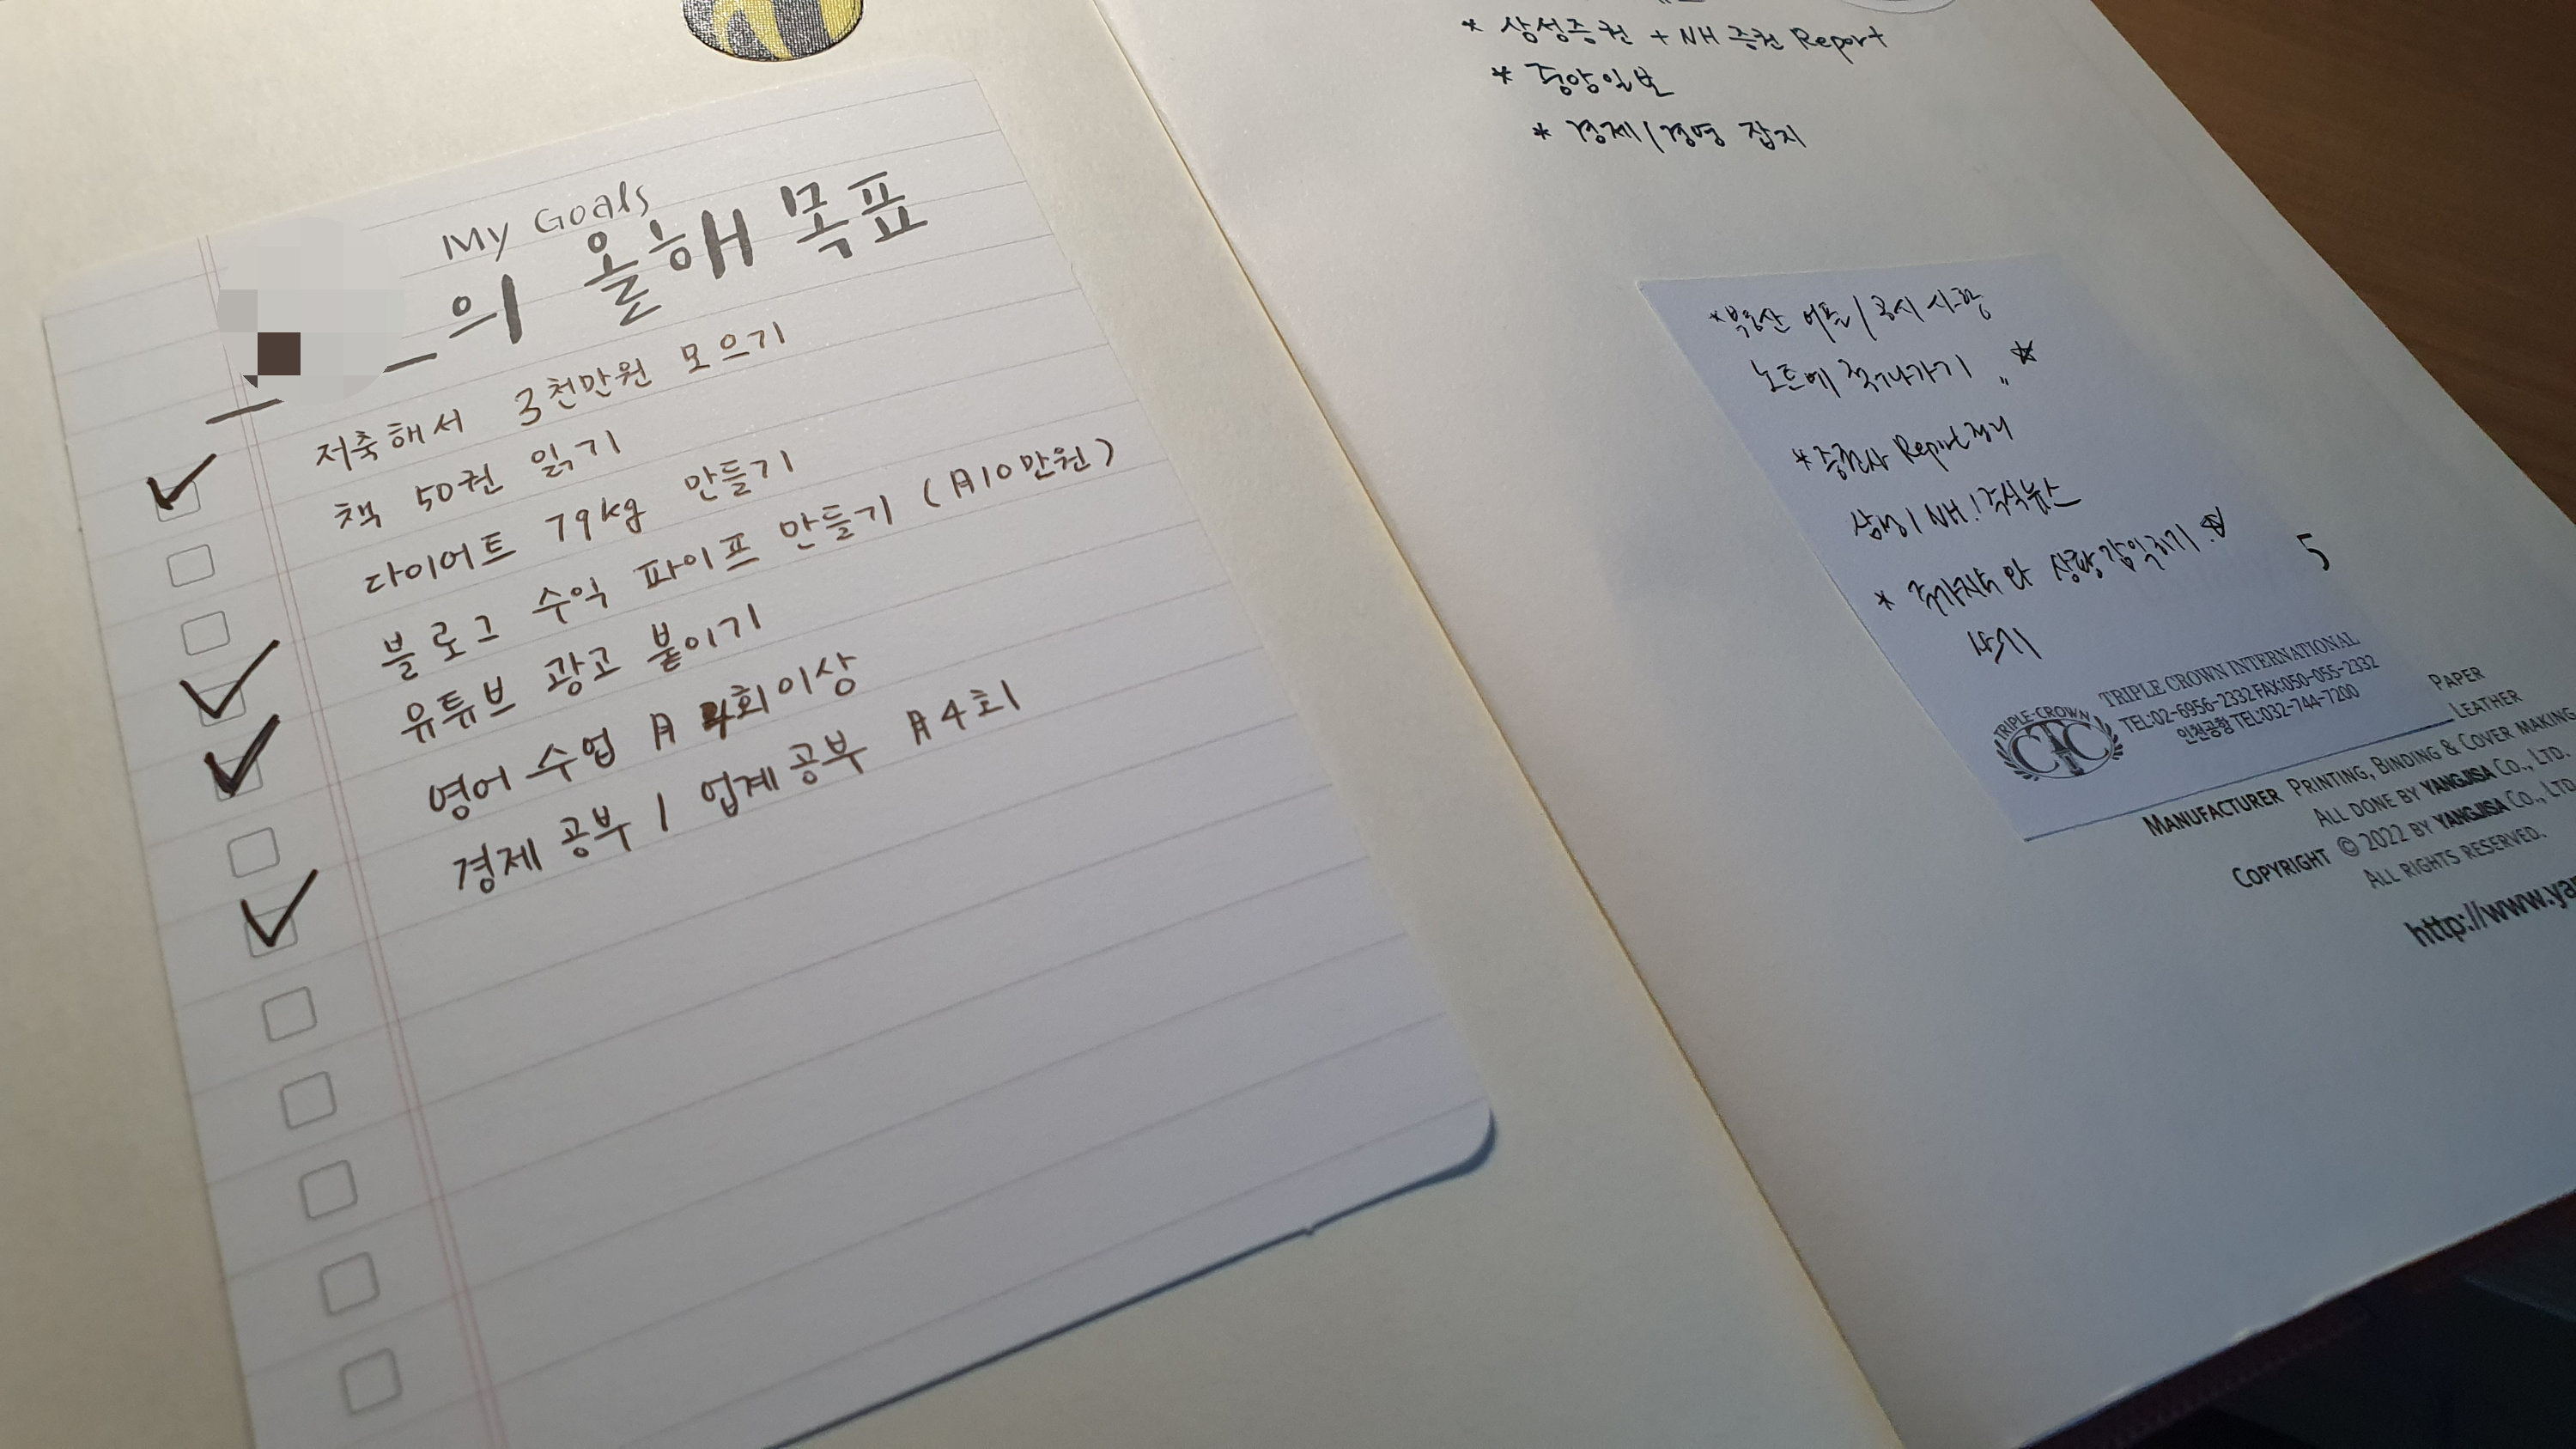 My Goals
의 올해 목표
저축해서 3천만원 모으기
책 50권 읽기
다이어트 79kg 만들기
블로그 수익 파이프 만들기 (月10만원)
유튜브 광고 붙이기
영어 수업 月 4회이상
경제 공부 / 업계공부 月4회
* 삼성증권 + NH 증권 Report
* 중앙일보
* 경제/경영 잡지
*부동산 어플/공시 사항
노트에 적어나가기
*증권사 Report정리
삼성/NH/주식뉴스
*
5
TRIPLE CROWN INTERNATIONAL
TEL:02-6956-2332 FAX:050-055-2332
인천공항 TEL:032-744-7200
TRIPLE-CROWN
CTC
PAPER
LEATHER
MANUFACTURER PRINTING, BINDING & COVER MAKING
ALL DONE BY YANGJISA CO., LTD.
COPYRIGHT © 2022 BY YANGJISA CO., LTD
ALL RIGHTS RESERVED.
http://www.ya